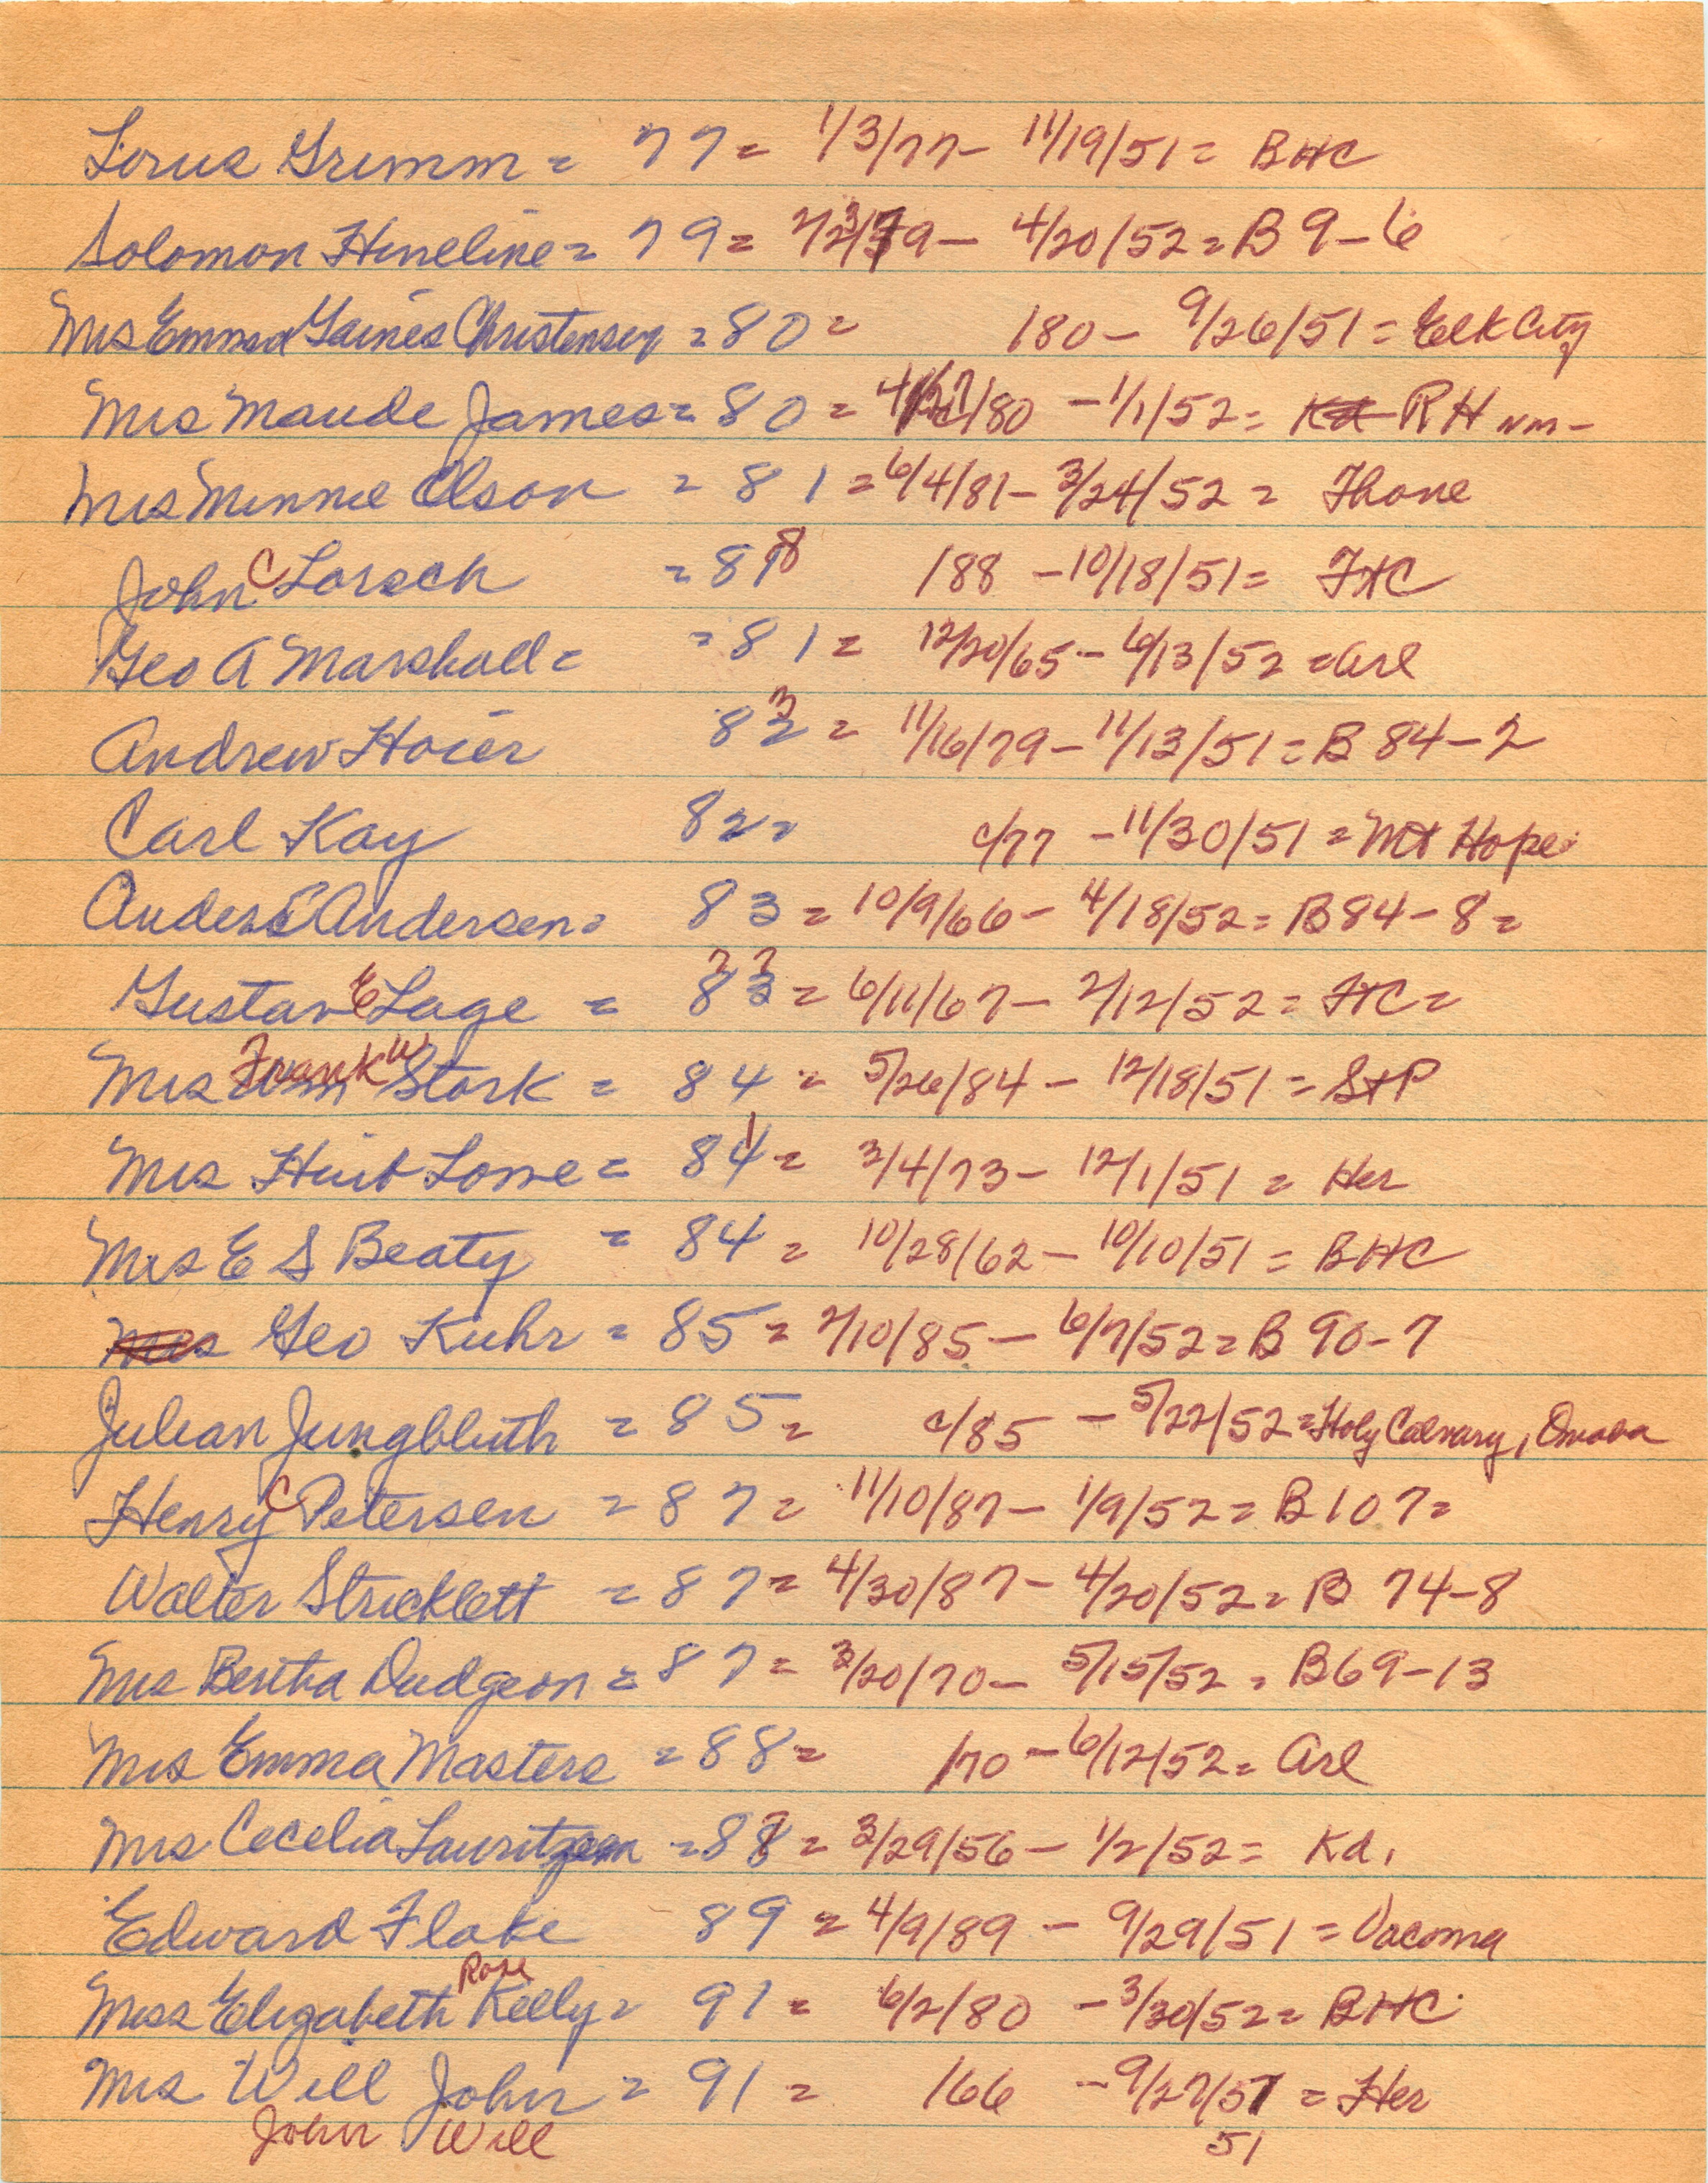 Lorus Grimm = 77 = 1/3/77 - 11/19/51 = BHC
Solomon Hineline = 79 = 2/23/79 - 4/20/52 = B 9-6
Mrs Emma Gaines Christensen = 80 = /80 - 9/26/51 = Elk City
Mrs Maude James = 80 = 4/ /80 - 1/1/52 = Kd RH nm -
Mrs Minnie Olson = 81 = 6/4/81 - 3/24/52 = Fhone
John C Lorsch = 818 /88 - 10/18/51 = FtC
Geo A Marshall = = 81 = 12/20/65 - 6/13/52 = Arl
Andrew Hoier 823 = 11/16/79 - 11/13/51 = B 84-2
Carl Kay 82 = c/77 - 11/30/51 = Mt Hope
Anders C Andersen = 83 = 10/9/66 - 4/18/52 = B 84-8 =
77
Gustav E Lage = 83 = 6/11/67 - 2/12/52 = FtC =
Frank W
Mrs Wm Stork = 84 = 5/26/84 - 12/18/51 = StP
1
Mrs Lowe = 84 = 3/4/73 - 12/1/51 = Her
Mrs E S Beaty = 84 = 10/28/62 - 10/10/51 = BHC
Mrs Geo Kuhr = 85 = 2/10/85 - 6/7/52 = B 90-7
Julian Jungbluth = 85 = c/85 - 5/22/52 = Holy Calvary, Omaha
Henry C Petersen = 87 = 11/10/87 - 1/9/52 = B 107 =
Walter Stricklett = 87 = 4/30/87 - 4/20/52 = B 74-8
Mrs Bertha Dudgeon = 87 = 3/20/70 - 5/15/52 = B69-13
Mrs Emma Masters = 88 = /70 - 6/12/52 = Arl
Mrs Cecelia Lauritzen = 88 = 3/29/56 - 1/2/52 = Kd.
Edward Flake 89 = 4/9/89 - 9/29/51 = Vacoma
Rose
Miss Elizabeth Kelly = 91 = 6/2/80 - 3/30/52 = BHC
Mrs Will John = 91 = /66 - 9/27/51 = Her
John Will 51